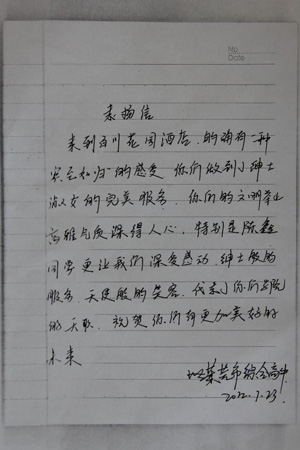 No
Date
表扬信
来到百川花园酒店,的确有一种
宾至如归的感受 你们做到了绅士
淑女的完美服务,你们的文明举止
高雅气度深得人心,特别是陈鑫
同学更让我们深受感动,绅士般的
服务 天使般的笑容,代表了你们员工
的天职,祝贺你们有更加美好的
未来
莱芜市综合高中
2012.7.23